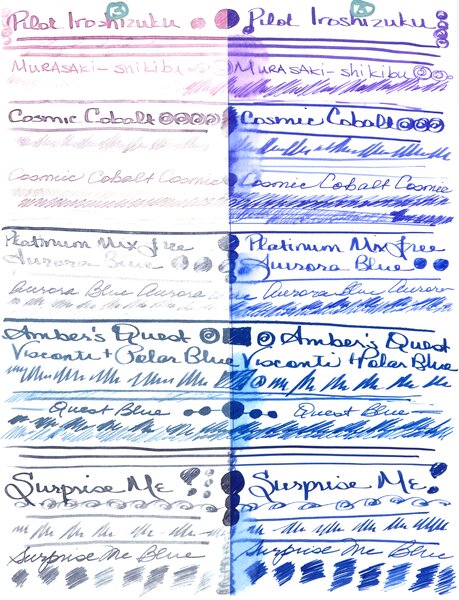 Pilot Iroshizuku Pilot Iroshizuku
Murasaki-shikibu Murasaki-shikibu
Cosmic Cobalt Cosmic Cobalt
Cosmic Cobalt Cosmic Cosmic Cobalt Cosmic
Platinum Mix free Platinum Mix free
Aurora Blue Aurora Blue
Aurora Blue Aurora Blue Aurora Blue Aurora
Amber's Quest Amber's Quest
Visconti + Polar Blue Visconti + Polar Blue
Quest Blue Quest Blue
Surprise Me! Surprise Me!
Surprise Me Blue Surprise Me Blue